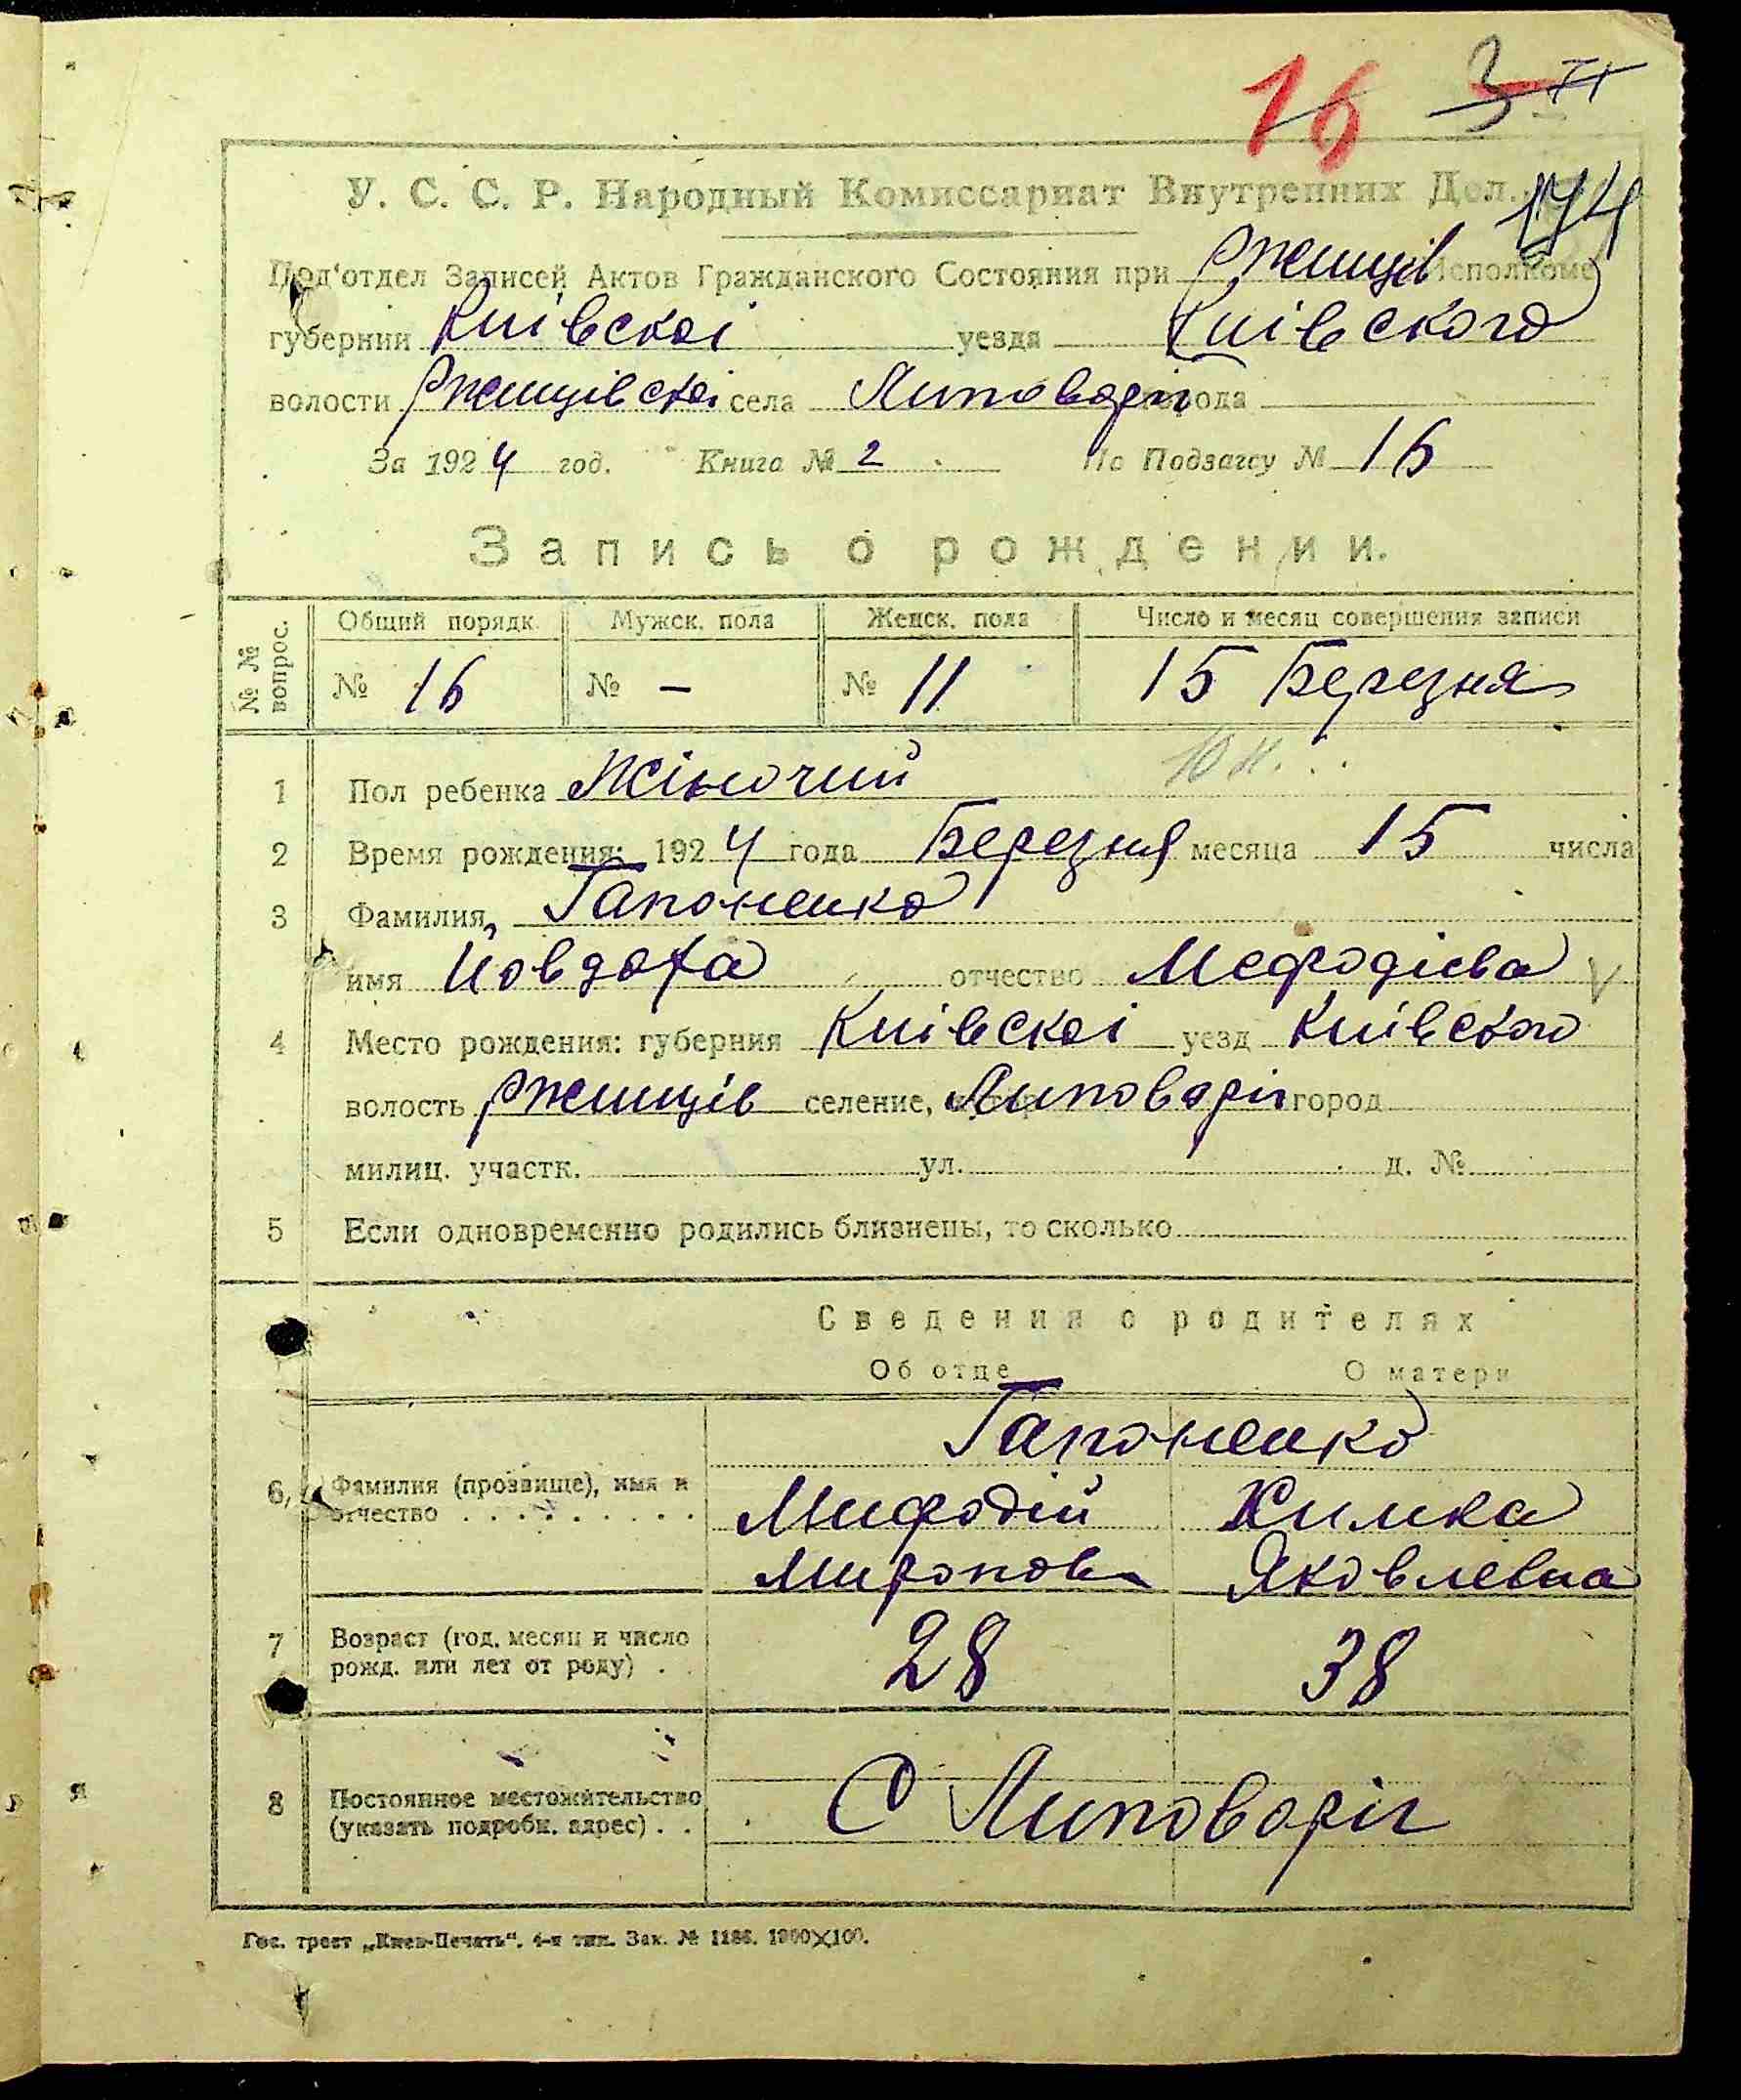 16 3 VI
У. С. С. Р. Народный Комиссариат Внутренних Дел.
174
Под'отдел Записей Актов Гражданского Состояния при Ржищів Исполкоме
губернии Київскоі уезда Київского
волости Ржищівскоі села Липоворіг города
За 1924 год. Книга № 2 По Подзагсу № 16
Запись о рождении.
№ № вопрос. Общий порядк. Мужск. пола Женск. пола Число и месяц совершения записи
№ 16 № – № 11 15 Березня
1 Пол ребенка Жіночий
2 Время рождения: 1924 года Березня месяца 15 числа
3 Фамилия, Гапоненко
имя Йовдоха отчество Мефодієва
4 Место рождения: губерния Київскоі уезд Київского
волость Ржищів селение, Липоворіг город
милиц. участк. ул. д. №
5 Если одновременно родились близнецы, то сколько
Сведения о родителях
Об отце О матери
Гапоненко
6 Фамилия (прозвище), имя и отчество Мифодій Химка
Миронов Яковлевна
7 Возраст (год, месяц и число рожд. или лет от роду) 28 38
8 Постоянное местожительство (указать подробн. адрес) С Липоворіг
Гос. трест „Киев-Печать", 4-я тип. Зак. № 1186. 1900×100.